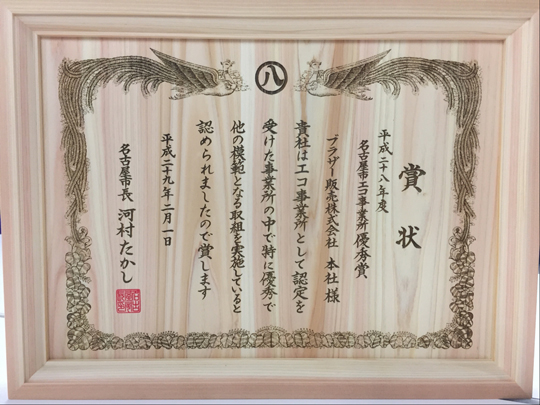 八
賞状
平成二十八年度
名古屋市エコ事業所優秀賞
ブラザー販売株式会社 本社様
貴社はエコ事業所として認定を
受けた事業所の中で特に優秀で
他の模範となる取組を実施していると
認められましたので賞します
平成二十九年二月一日
名古屋市長 河村たかし